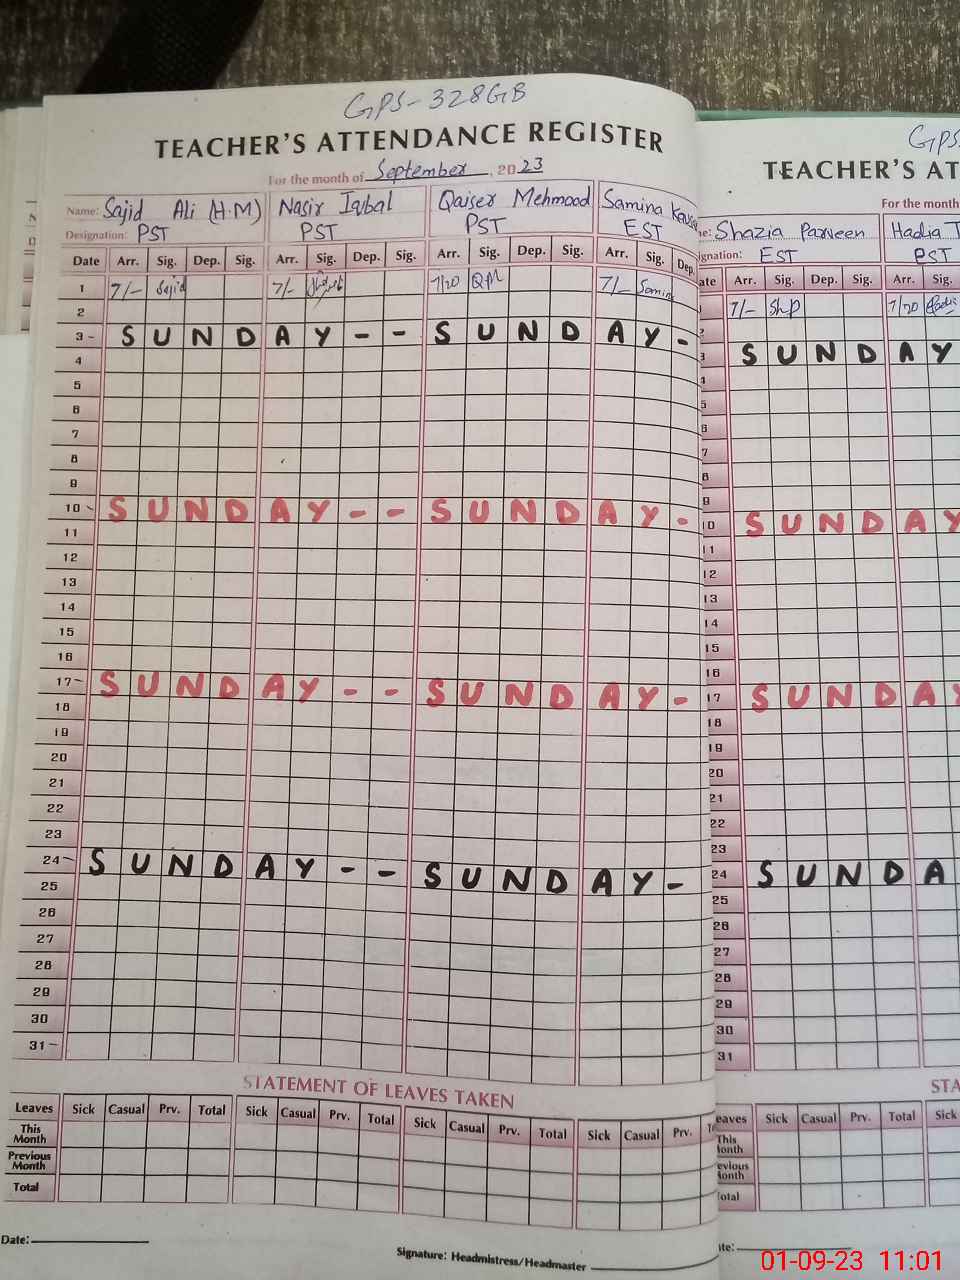 GPS-328GB
TEACHER'S ATTENDANCE REGISTER
For the month of September, 2023
Name: Sajid Ali (H.M) Nasir Iqbal Qaiser Mehmood Samina
Designation: PST PST PST EST
Date Arr. Sig. Dep. Sig. Arr. Sig. Dep. Sig. Arr. Sig. Dep. Sig. Arr. Sig. Dep.
1 7/- Sajid 7/- 7/20 QM 7/- Samina
2
3 - S U N D A Y - - S U N D A Y -
4
5
6
7
8
9
10 - S U N D A Y - - S U N D A Y -
11
12
13
14
15
16
17 - S U N D A Y - - S U N D A Y -
18
19
20
21
22
23
24 - S U N D A Y - - S U N D A Y -
25
26
27
28
29
30
31 -
STATEMENT OF LEAVES TAKEN
Leaves Sick Casual Prv. Total Sick Casual Prv. Total Sick Casual Prv. Total Sick Casual Prv.
This Month
Previous Month
Total
Date:
Signature: Headmistress/Headmaster
GPS
TEACHER'S AT
For the month
me: Shazia Parveen Hadia
ignation: EST PST
ate Arr. Sig. Dep. Sig. Arr. Sig.
7/- ShP 7/20
2
3 S U N D A Y
4
5
6
7
8
9
10 S U N D A Y
11
12
13
14
15
16
17 S U N D A Y
18
19
20
21
22
23
24 S U N D A
25
26
27
28
29
30
31
STA
eaves Sick Casual Prv. Total Sick
This Month
evious Month
otal
ate:
01-09-23 11:01